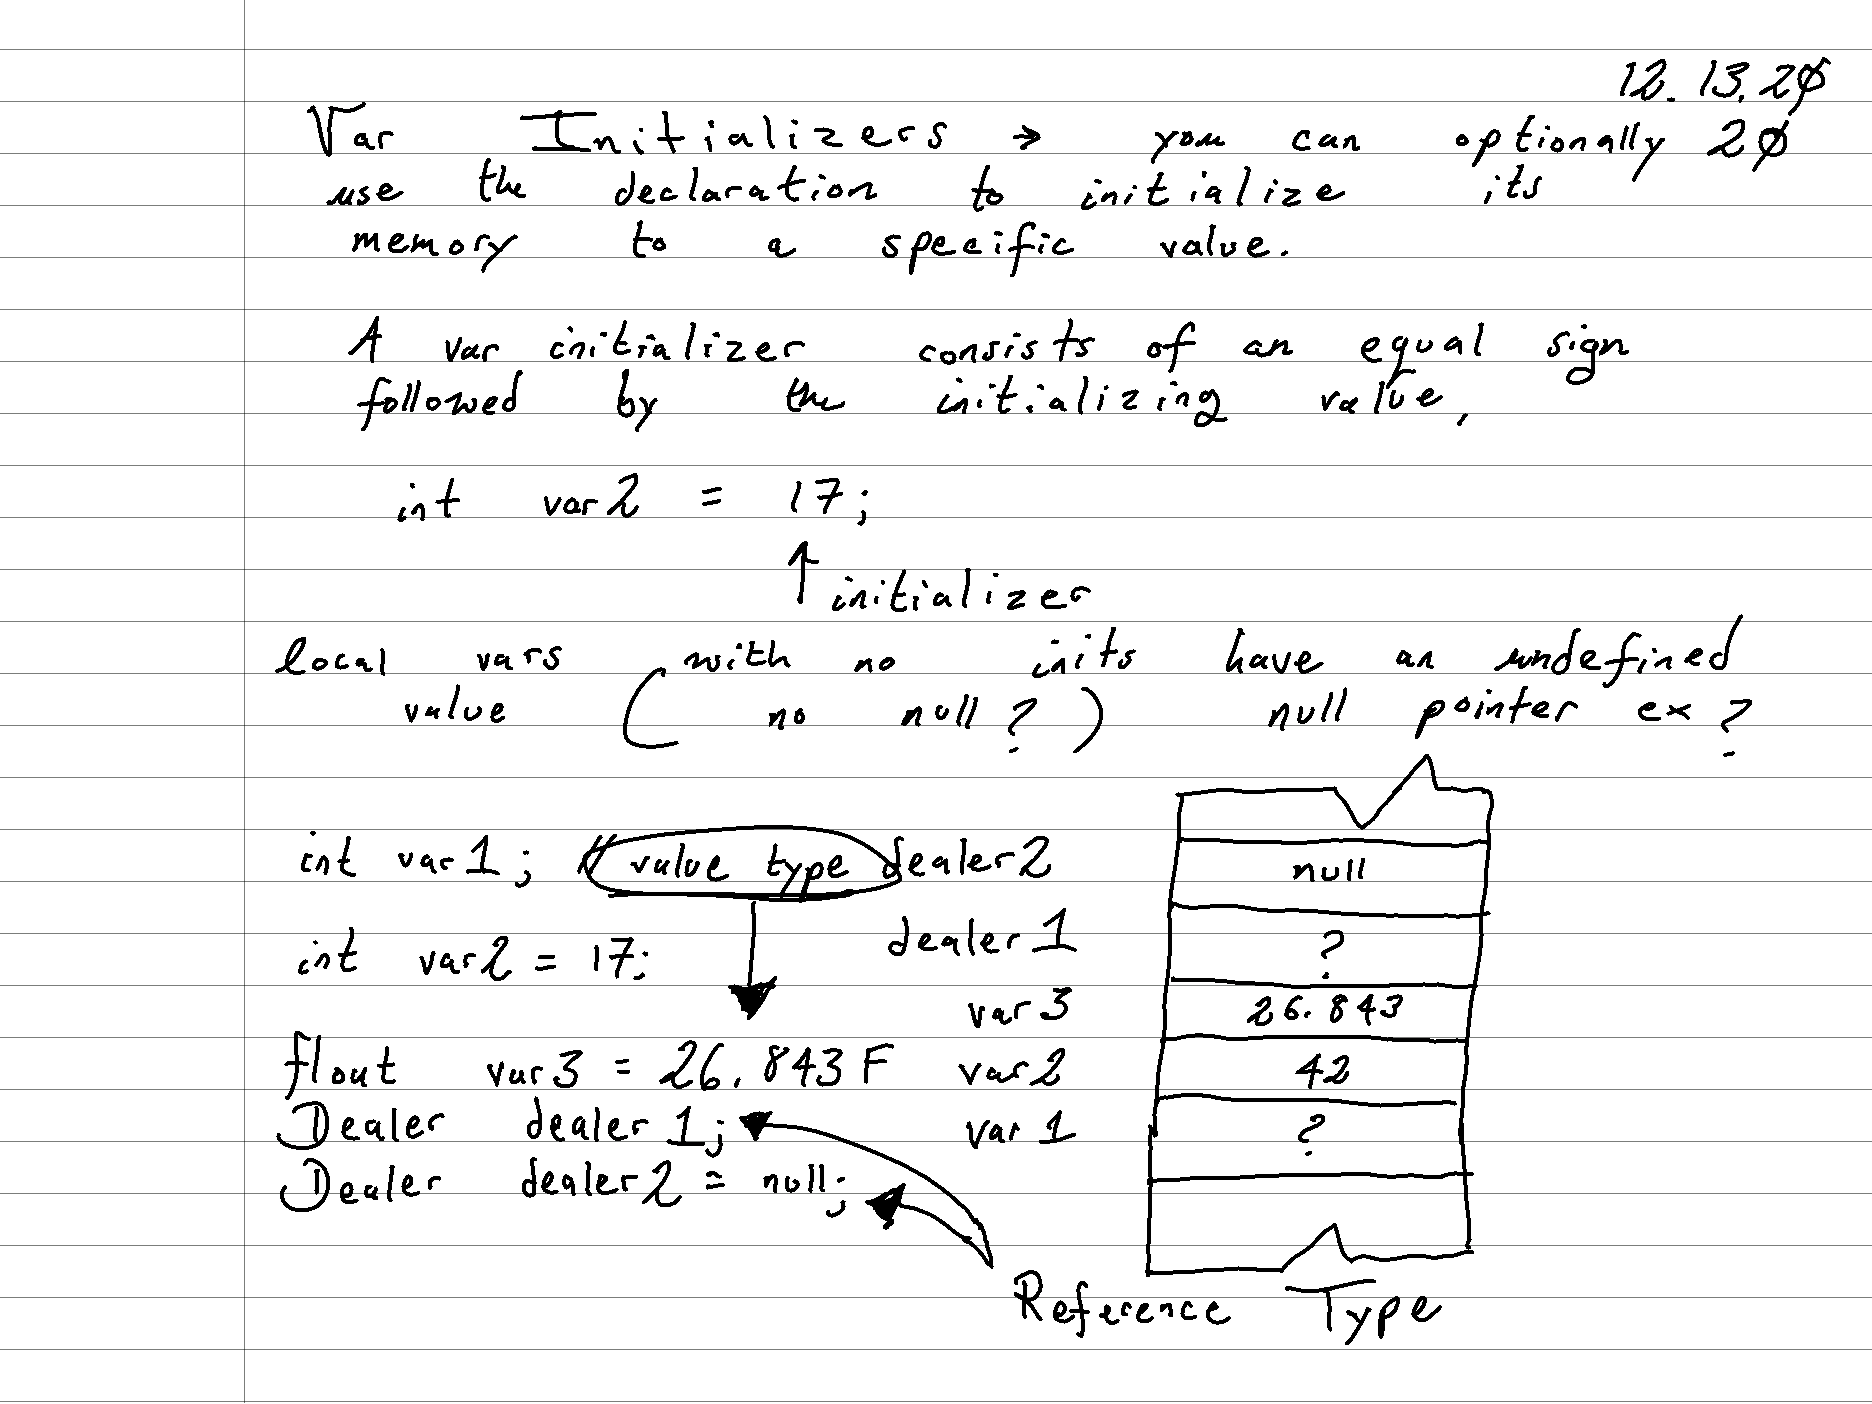 12.13.20
Var Initializers → you can optionally 20
use the declaration to initialize its
memory to a specific value.
A var initializer consists of an equal sign
followed by the initializing value,
int var2 = 17;
↑ initializer
local vars with no inits have an undefined
value ( no null ? ) null pointer ex ?
int var1; // value type
int var2 = 17;
float var3 = 26.843 F
Dealer dealer1;
Dealer dealer2 = null;
dealer2 null
dealer1 ?
var3 26.843
var2 42
var1 ?
Reference Type